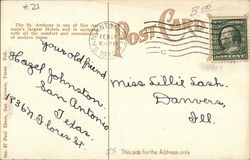 #21
3.00
The St. Anthony is one of San An-
tonio's largest Hotels and is equipped
with all the comfort and convenience
of modern times.
POST CARD
SAN ANTONIO
FEB
6-PM
your old friend
Hazel Johnston.
San Antonio
Texas
1836 W. Flores St.
Miss Lillie Lash.
Danvers,
Ill.
This side for the Address only